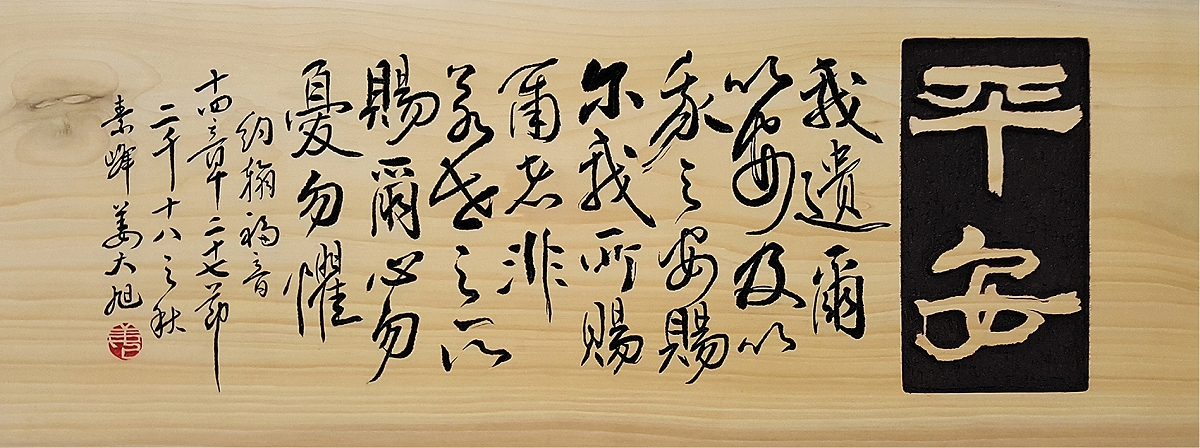 平安
我遺爾
以安及以
我之安賜
尔我所賜
爾者非
若世之所
賜爾心勿
憂勿懼
約翰福音
十四章二十七節
二千十八之秋
素峰姜大旭